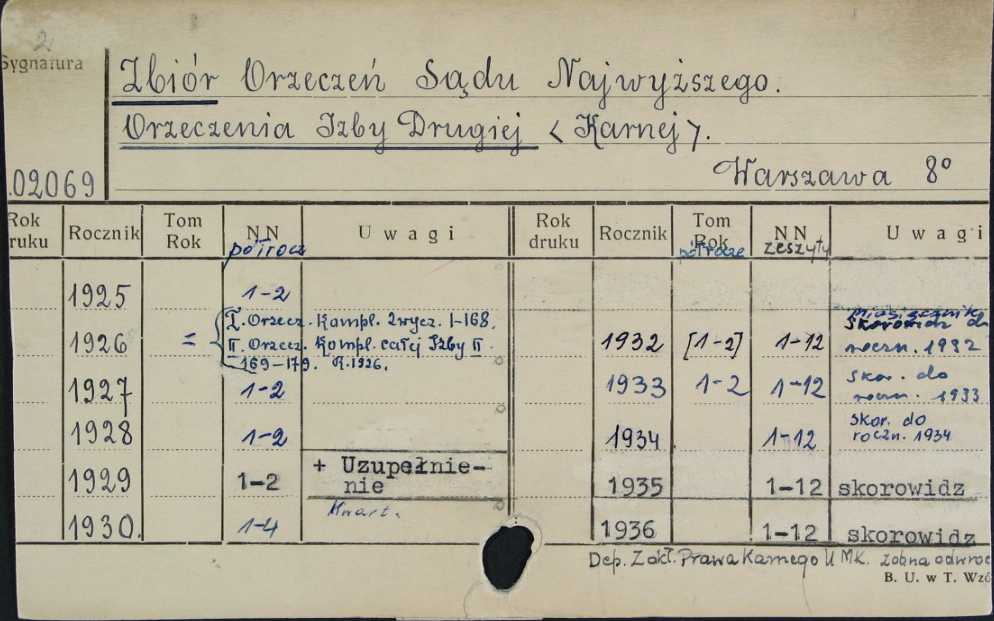 2
Sygnatura
Zbiór Orzeczeń Sądu Najwyższego.
Orzeczenia Izby Drugiej <Karnej>.
.02069
Warszawa 8°
Rok druku Rocznik Tom Rok NN półrocz Uwagi Rok druku Rocznik Tom Rok półrocze NN zeszyty Uwagi
1925 1-2
1926 = I. Orzecz. Kompl. zwycz. 1-168.
II. Orzecz. Kompl. całej Izby II
169-179. R.1926.
1927 1-2
1928 1-2
1929 1-2 + Uzupełnie-
nie
1930. 1-4 Kwart.
miesięcznik
1932 [1-2] 1-12 Skorowidz do
roczn. 1932
1933 1-2 1-12 Skor. do
roczn. 1933
1934 1-12 Skor. do
roczn. 1934
1935 1-12 skorowidz
1936 1-12 skorowidz
Dep. Zakł. Prawa Karnego UMK. zobna odwroc
B. U. w T. Wzó